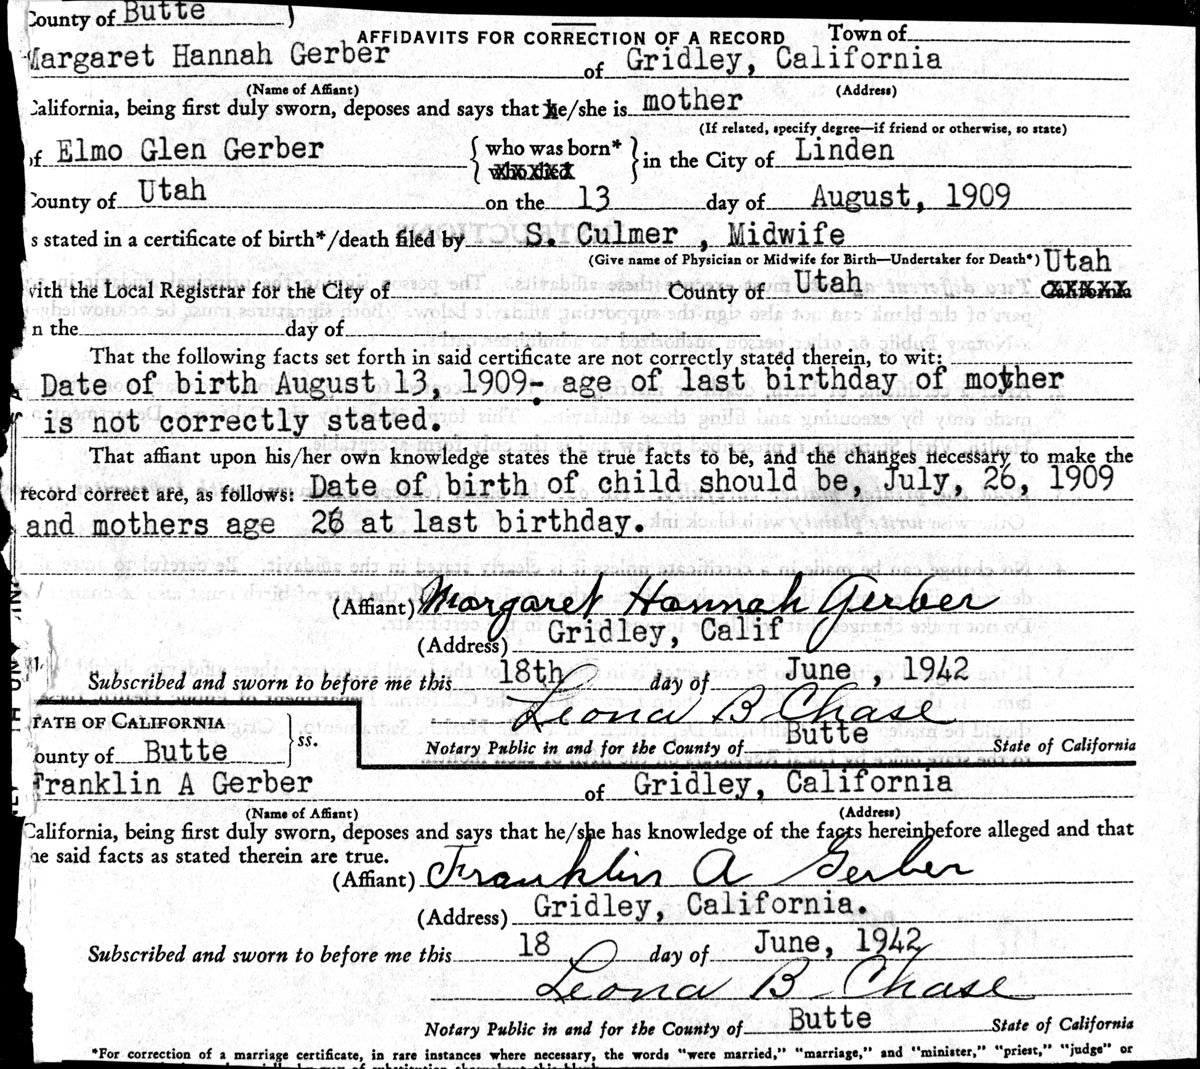 County of Butte )
AFFIDAVITS FOR CORRECTION OF A RECORD Town of
Margaret Hannah Gerber of Gridley, California
(Name of Affiant) (Address)
California, being first duly sworn, deposes and says that he/she is mother
(If related, specify degree—if friend or otherwise, so state)
of Elmo Glen Gerber { who was born* who died } in the City of Linden
County of Utah on the 13 day of August, 1909
s stated in a certificate of birth*/death filed by S. Culmer , Midwife
(Give name of Physician or Midwife for Birth—Undertaker for Death*) Utah
with the Local Registrar for the City of County of Utah
n the day of
That the following facts set forth in said certificate are not correctly stated therein, to wit:
Date of birth August 13, 1909- age of last birthday of mother
is not correctly stated.
That affiant upon his/her own knowledge states the true facts to be, and the changes necessary to make the
record correct are, as follows: Date of birth of child should be, July, 26, 1909
and mothers age 26 at last birthday.
(Affiant) Margaret Hannah Gerber
(Address) Gridley, Calif
Subscribed and sworn to before me this 18th day of June , 1942
Leona B Chase
Notary Public in and for the County of Butte State of California
TATE OF CALIFORNIA
ounty of Butte } ss.
Franklin A Gerber of Gridley, California
(Name of Affiant) (Address)
California, being first duly sworn, deposes and says that he/she has knowledge of the facts hereinbefore alleged and that
he said facts as stated therein are true.
(Affiant) Franklin A Gerber
(Address) Gridley, California.
Subscribed and sworn to before me this 18 day of June, 1942
Leona B Chase
Notary Public in and for the County of Butte State of California
*For correction of a marriage certificate, in rare instances where necessary, the words "were married," "marriage," and "minister," "priest," "judge" or